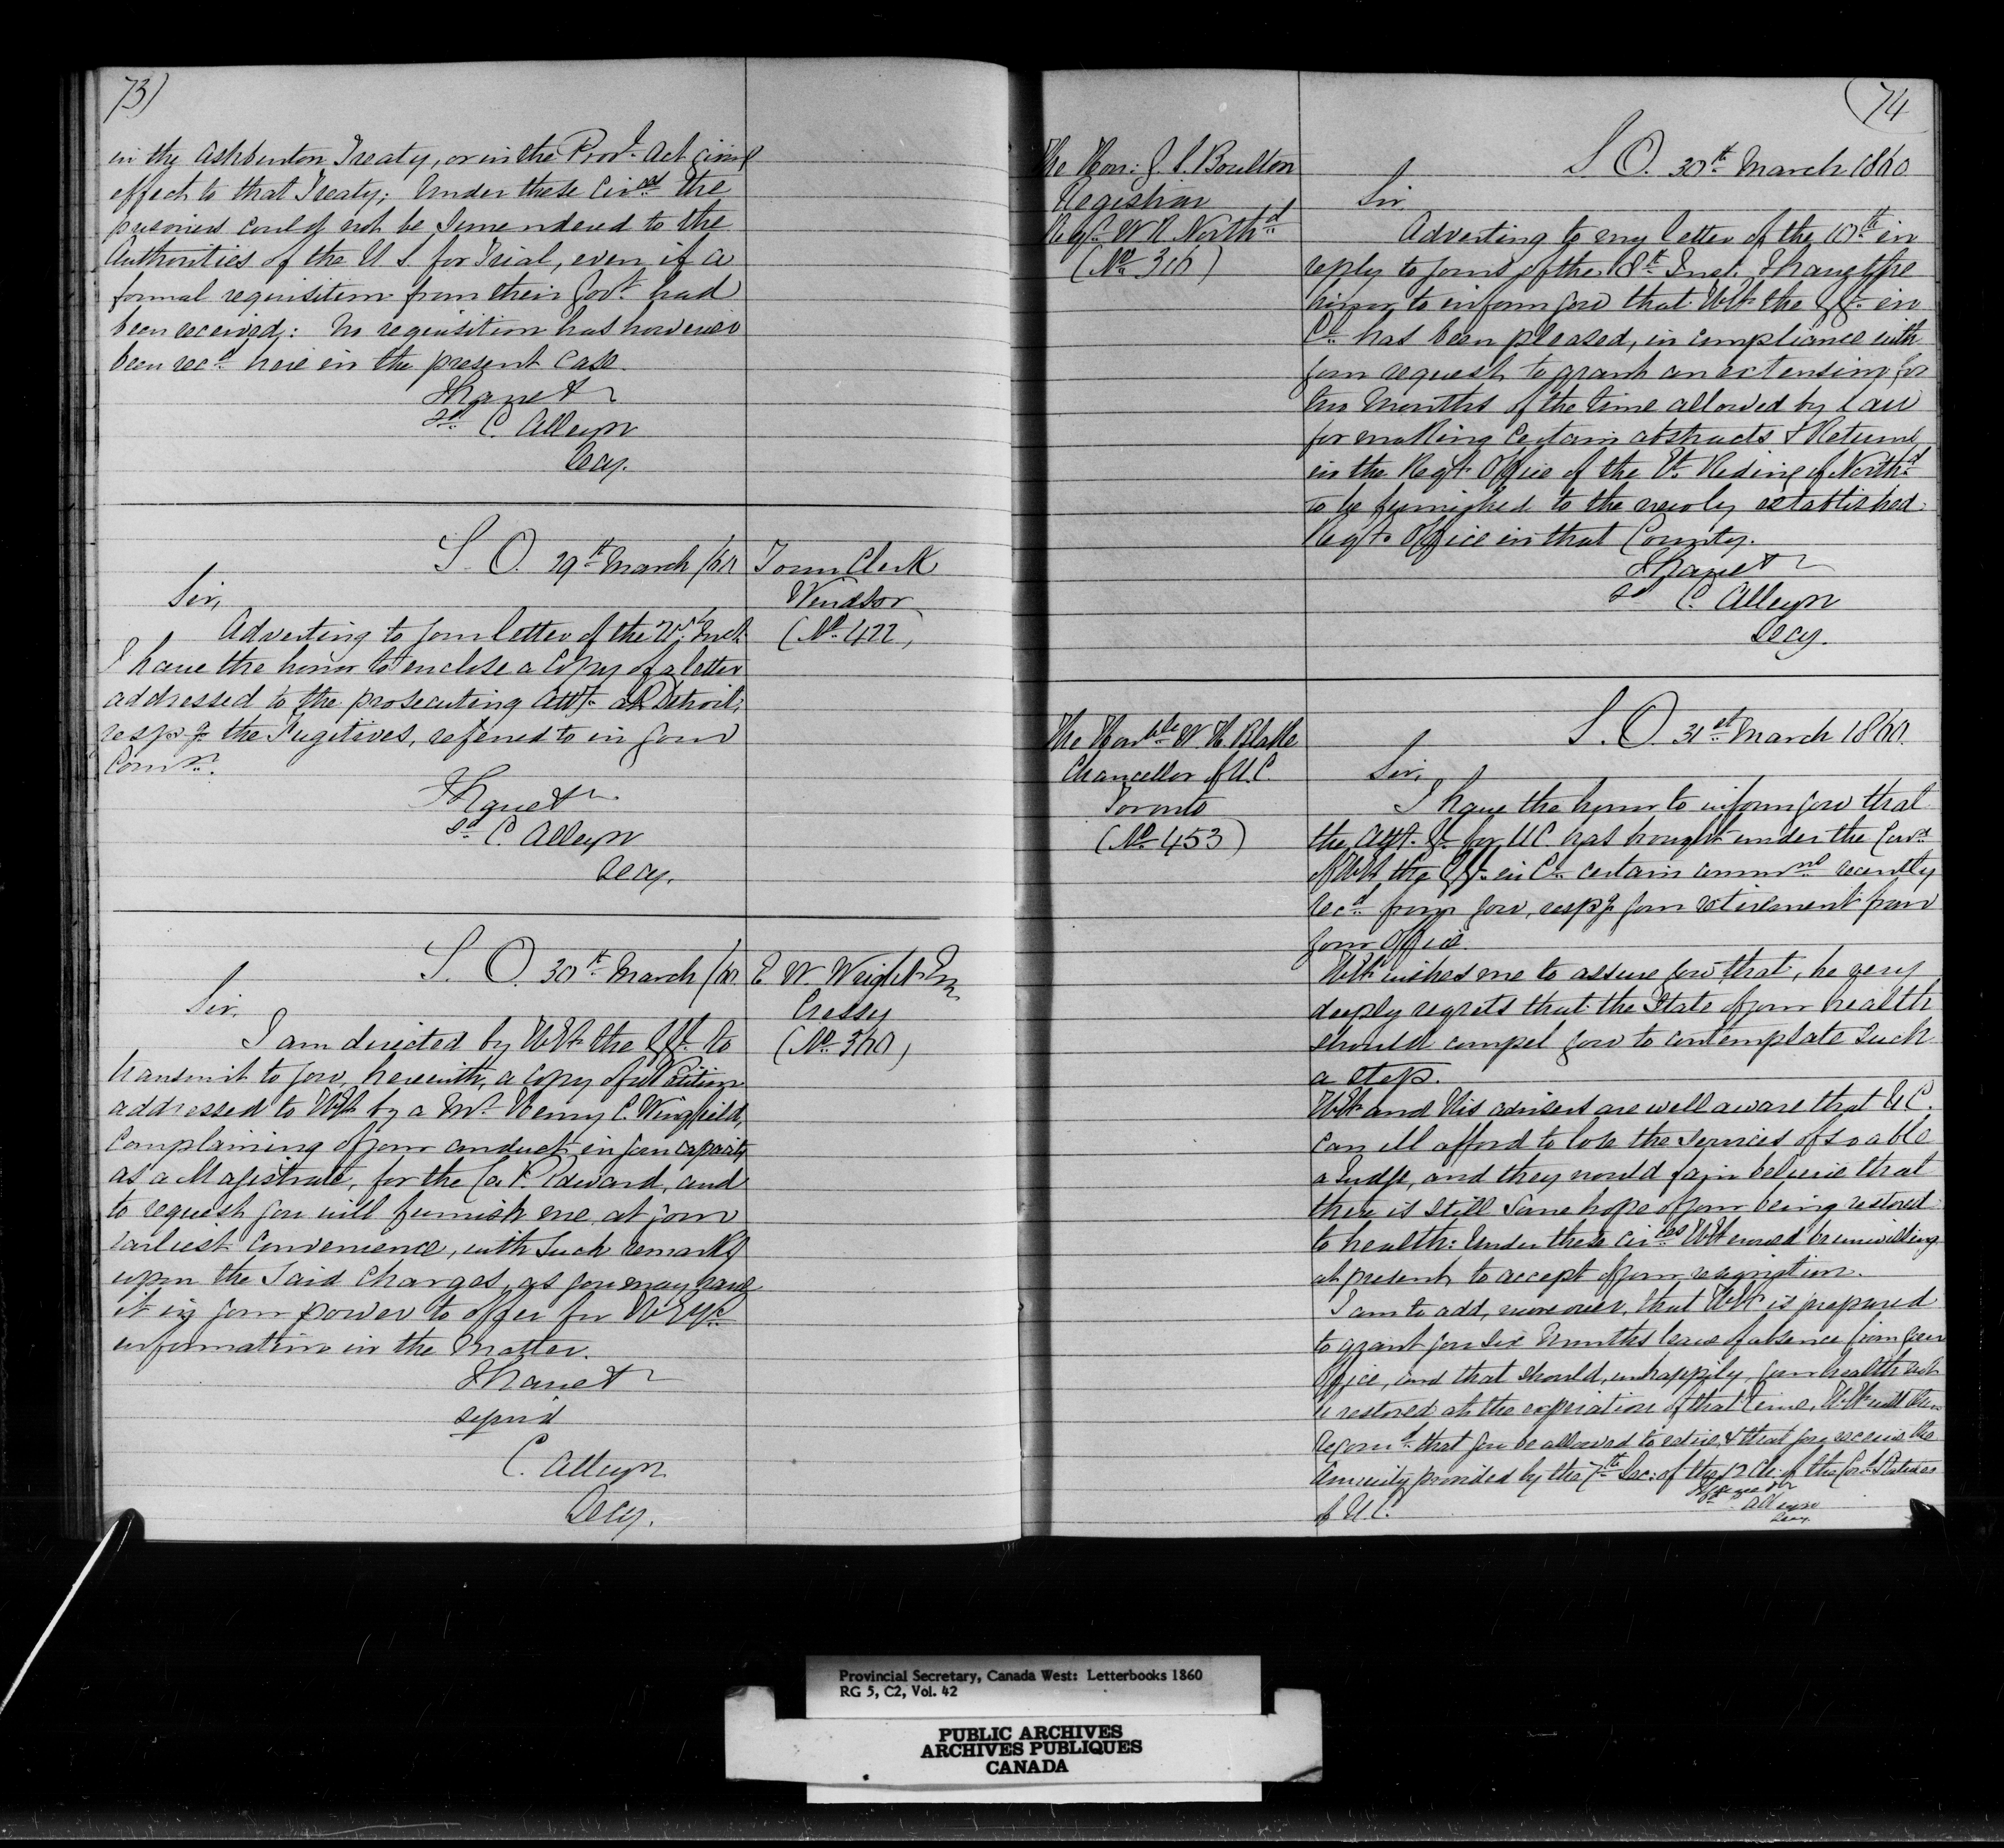 73)
in the Ashburton Treaty, or in the Provl. Act giving
effect to that Treaty; Under these Circes the
prisoners could not be surrendered to the
Authorities of the U. S. for Trial, even if a
formal requisition from their Govt. had
been received: No requisition has however
been recd. here in the present Case.
I have &
sd. C. Alleyn
Secy.
S. O. 29th March /60
Town Clerk
Windsor
(No. 422)
Sir,
Adverting to your letter of the Inst.
I have the honor to enclose a Copy of a letter
addressed to the prosecuting Atty. at Detroit,
respg. the Fugitives, referred to in your
Comn.
I have &
sd. C. Alleyn
Secy.
S. O. 30th March /60
E. W. Wright Esq.
Cressy
(No. 360)
Sir,
I am directed by H E the G G. to
transmit to you, herewith, a copy of a Petition
addressed to H E by a Mr. Henry C. Wingfield,
Complaining of your conduct in your capacity
as a Magistrate, for the Co. P. Edward, and
to request you will furnish me at your
earliest Convenience, with such remarks
upon the said Charges, as you may have
it in your power to offer for H Ey's
information in the Matter.
I have &
signed
C. Alleyn
Secy.
(74
The Hon: G. S. Boulton
Registrar
Regy. W R. Northd.
(No. 316)
S. O. 30th March 1860
Sir
Adverting to my letter of the 10th in
reply to yours of the 8th Inst. I have the
honor to inform you that H E the G G. in
C. has been pleased, in compliance with
your request to grant an extension for
two Months of the time allowed by Law
for making Certain abstracts & Returns
in the Regy. Office of the Wt. Riding of Northd.
to be furnished to the newly established
Regy. Office in that County.
I have &
sd C. Alleyn
Secy.
The Honble W. H. Blake
Chancellor of U. C.
Toronto
(No. 453)
S. O. 31st March 1860.
Sir,
I have the honor to inform you that
the Atty. G. for U C. has brought under the Consn.
of H E the G G. in C. certain commns recently
recd. from you, respg your retirement from
your Office.
H E wishes me to assure you that, he very
deeply regrets that the State of your health
should compel you to contemplate such
a step.
H E and His advisers are well aware that U C.
can ill afford to lose the services of so able
a Judge, and they would fain believe that
there is still some hope of your being restored
to health: Under these circes H E would be unwilling
at present to accept of your resignation.
I am to add, moreover, that H E is prepared
to grant you Six Months leave of absence from your
Office, and that should, unhappily, your health not
be restored at the expiration of that time, H. E will then
recomd. that you be allowed to retire, & that you receive the
Annuity provided by the 7th Sec: of the 12 Ch: of the Cond. Statutes
of U. C.
I have &
sd C. Alleyn
Secy.
Provincial Secretary, Canada West: Letterbooks 1860
RG 5, C2, Vol. 42
PUBLIC ARCHIVES
ARCHIVES PUBLIQUES
CANADA